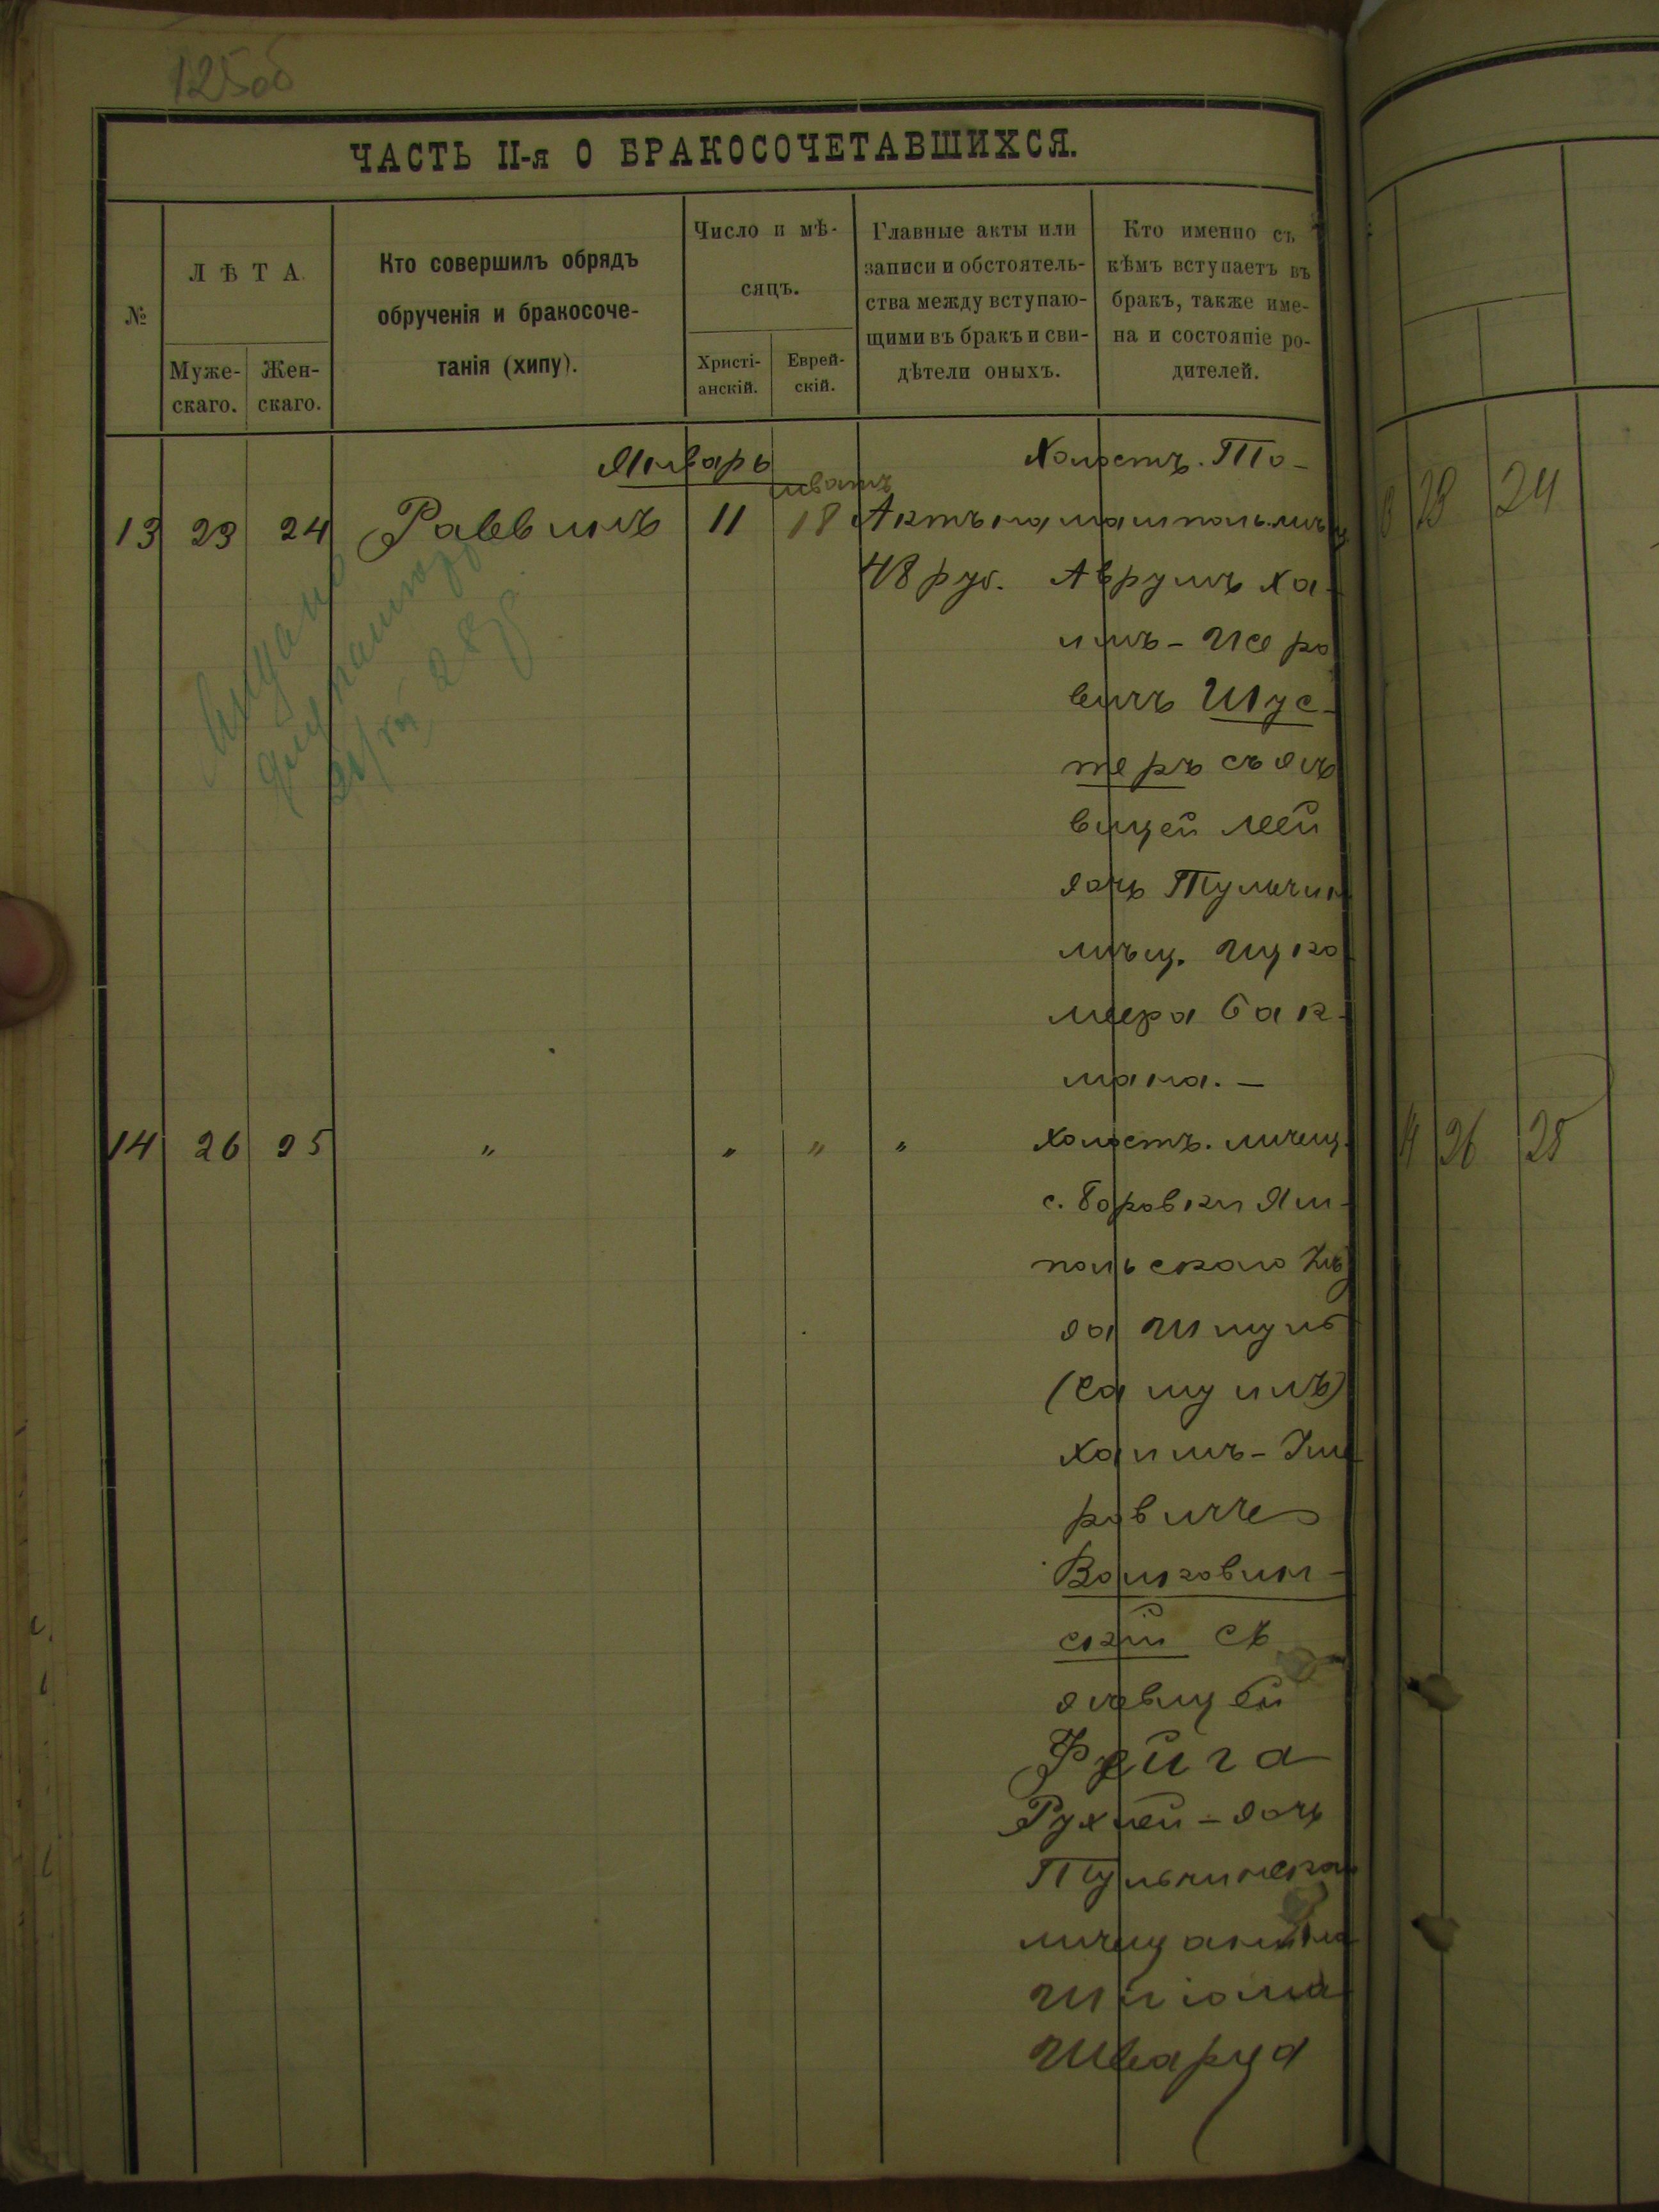 125об
ЧАСТЬ II-я О БРАКОСОЧЕТАВШИХСЯ.
№
ЛѢТА.
Муже-
скаго.
Жен-
скаго.
Кто совершилъ обрядъ
обрученія и бракосоче-
танія (хипу).
Число и мѣ-
сяцъ.
Христі-
анскій.
Еврей-
скій.
Главные акты или
записи и обстоятель-
ства между вступаю-
щими въ бракъ и сви-
дѣтели оныхъ.
Кто именно съ
кѣмъ вступаетъ въ
бракъ, также име-
на и состояніе ро-
дителей.
Январь
Шватъ
Холостъ. То-
13 23 24 Раввинъ 11 18 Актъ на машпольск. мѣщ
48 руб. Аврумъ Ха-
имъ-
вичъ Шус-
теръ съ дѣ
вицей Леей
дочь Тульчин
мѣщ. Ицко
Меера Бак-
мана. —
14 26 25 " " " " Холостъ. мѣщ.
с. Боровки Ям-
польскаго Уѣз
да Шмуль
(Самуилъ)
Хаимъ-
ровичъ
Волковин-
скій съ
дѣвицей
Фейга
Рухлей - дочь
Тульчинскаго
мѣщанина
Шліома
Шварца
28 24
14 26 25